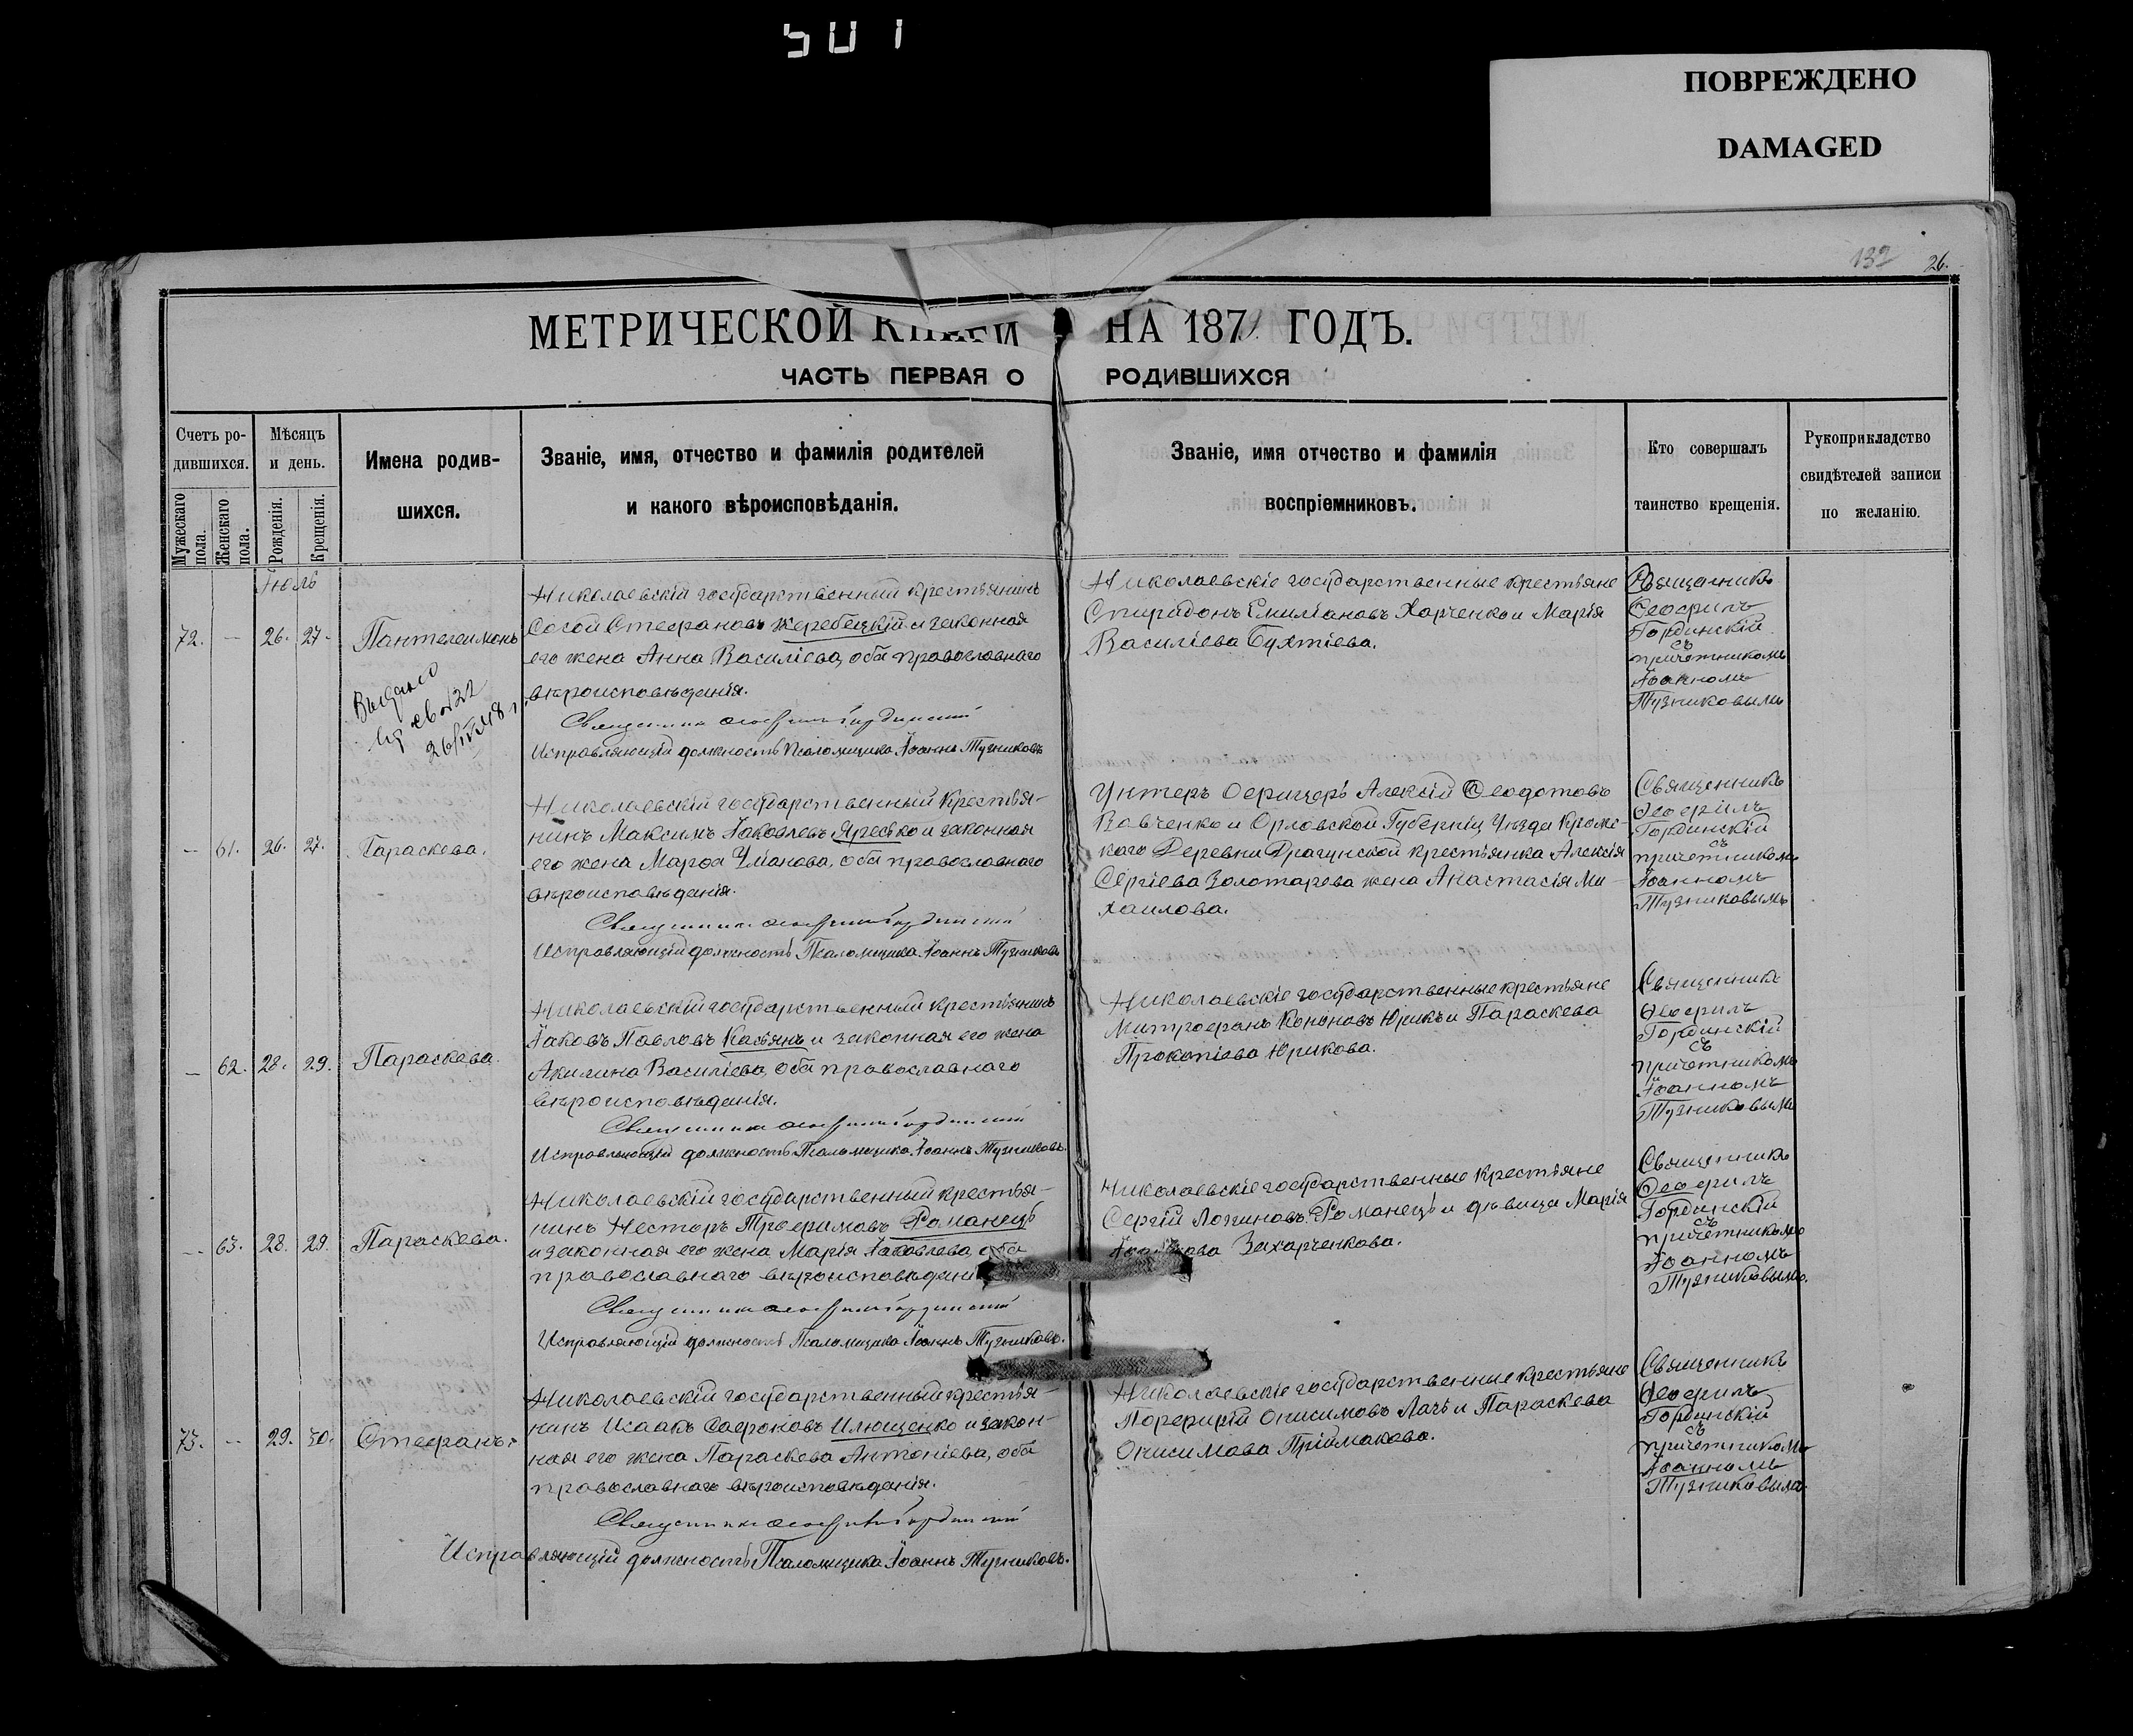 501
ПОВРЕЖДЕНО
DAMAGED
132 26.
МЕТРИЧЕСКОЙ КНИГИ НА 187 ГОДЪ.
ЧАСТЬ ПЕРВАЯ О РОДИВШИХСЯ
Счетъ ро-
дившихся.
Мужескаго пола.
Женскаго пола.
Мѣсяцъ
и день.
Рожденія.
Крещенія.
Имена родив-
шихся.
Званіе, имя, отчество и фамилія родителей
и какого вѣроисповѣданія.
Званіе, имя отчество и фамилія
воспріемниковъ.
Кто совершалъ
таинство крещенія.
Рукоприкладство
свидѣтелей записи
по желанію.
Іюль
72. — 26. 27. Пантелеимонъ
Выдано
св № 22
26/IV 48 г.
Николаевскій государственный крестьянинъ
Стефановъ Жеребецкій и законная
его жена Анна Василіева, оба православнаго
вѣроисповѣданія.
Священникъ Ѳеофилъ Гординскій
Исправляющій должность Псаломщика Іоаннъ Тузниковъ
Николаевскіе государственные крестьяне
Спиридонъ Емиліановъ Харченко и Марія
Василіева Бухтіева.
Священникъ
Ѳеофилъ
Гординскій
съ
причетникомъ
Іоанномъ
Тузниковымъ
— 61. 26. 27. Параскева.
Николаевскій государственный Крестья-
нинъ Максимъ Іаковлевъ Яресько и законная
его жена Марфа Уліанова, оба православнаго
вѣроисповѣданія.
Священникъ Ѳеофилъ Гординскій
Исправляющій должность Псаломщика Іоаннъ Тузниковъ
Унтеръ Офицеръ Алексій Ѳеодотовъ
Вовченко и Орловской Губерніи Уѣзда Кромс-
каго Деревни Драгунской крестьянка Алексія
Сергіева Золотарева жена Анастасія Ми-
хаилова.
Священникъ
Ѳеофилъ
Гординскій
съ
причетникомъ
Іоанномъ
Тузниковымъ
— 62. 28. 29. Параскева.
Николаевскій государственный крестьянинъ
Іаковъ Павловъ Касьянъ и законная его жена
Акилина Василіева, оба православнаго
вѣроисповѣданія.
Священникъ Ѳеофилъ Гординскій
Исправляющій должность Псаломщика Іоаннъ Тузниковъ.
Николаевскіе государственные крестьяне
Митрофанъ Кононовъ Юрикъ и Параскева
Прокопіева Юрикова.
Священникъ
Ѳеофилъ
Гординскій
съ
причетникомъ
Іоанномъ
Тузниковымъ
— 63. 28. 29. Параскева.
Николаевскій государственный крестья-
нинъ Несторъ Трофимовъ Романецъ
и законная его жена Марія Іаковлева, оба
православнаго вѣроисповѣдані
Священникъ Ѳеофилъ Гординскій
Исправляющій должность Псаломщика Іоаннъ Тузниковъ.
Николаевскіе государственные крестьяне
Сергій Логиновъ Романецъ и дѣвица Марія
Захарченкова.
Священникъ
Ѳеофилъ
Гординскій
съ
причетникомъ
Іоанномъ
Тузниковымъ.
73. — 29. 30. Стефанъ.
Николаевскій государственный крестья-
нинъ Исаакъ Сафроновъ Илющенко и закон-
ная его жена Параскева Антоніева, оба
православнаго вѣроисповѣданія.
Священникъ Ѳеофилъ Гординскій
Исправляющій должность Псаломщика Іоаннъ Тузниковъ.
Николаевскіе государственные крестьяне
Порфирій Онисимовъ Лачъ и Параскева
Онисимова Пріймакова.
Священникъ
Ѳеофилъ
Гординскій
съ
причетникомъ
Іоанномъ
Тузниковымъ.